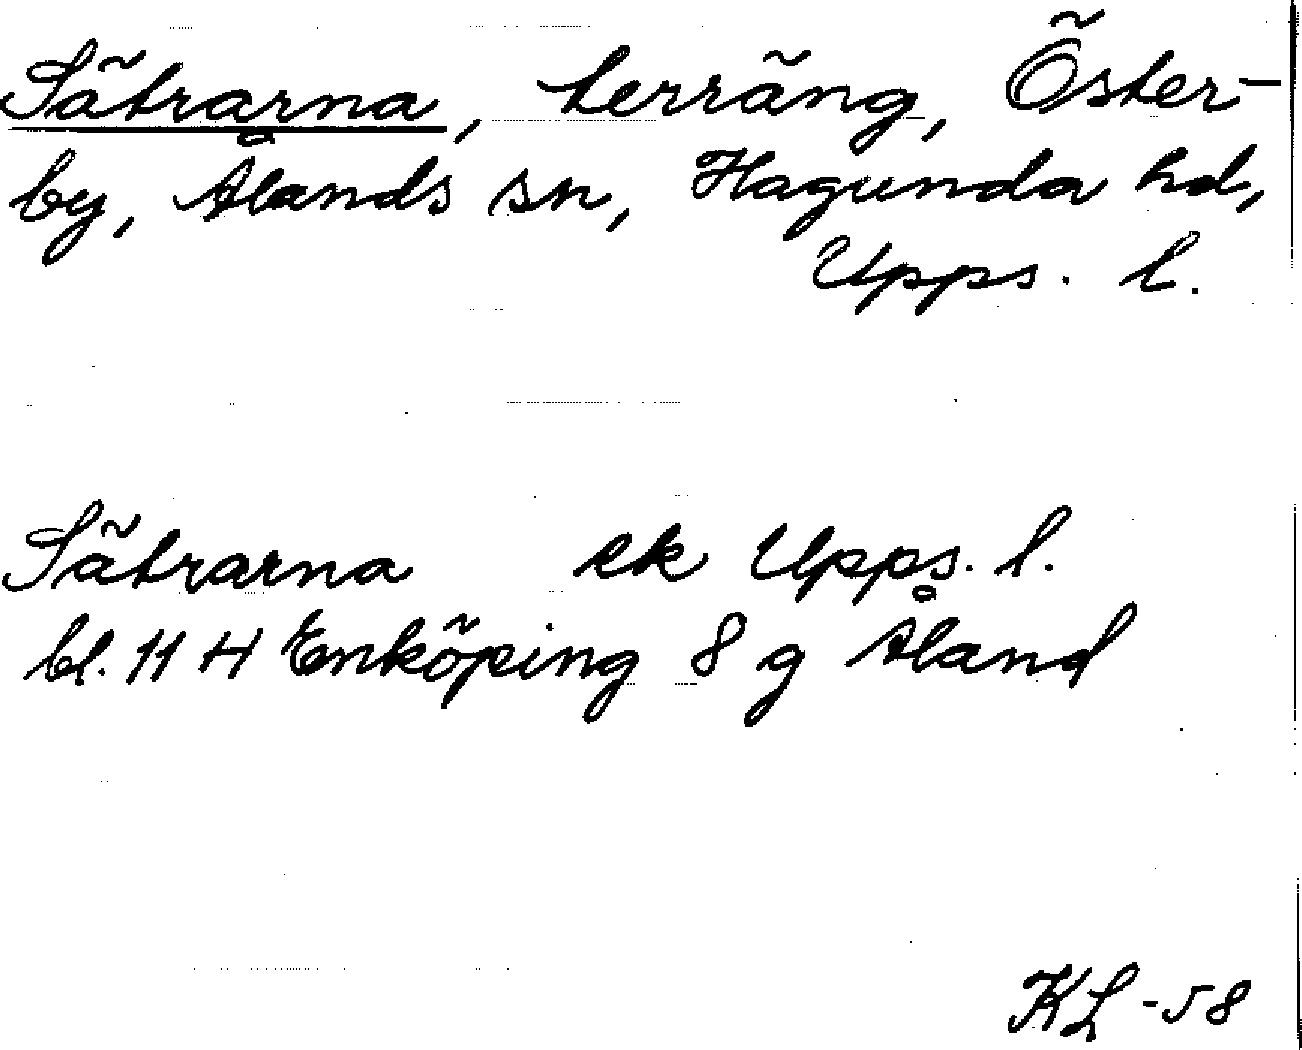 Sätrarna, terräng, Öster-
by, Ålands sn, Hagunda hd,
Upps. l.
Sätrarna ek Upps. l.
bl. 11 H Enköping 8 g Åland
KL -58